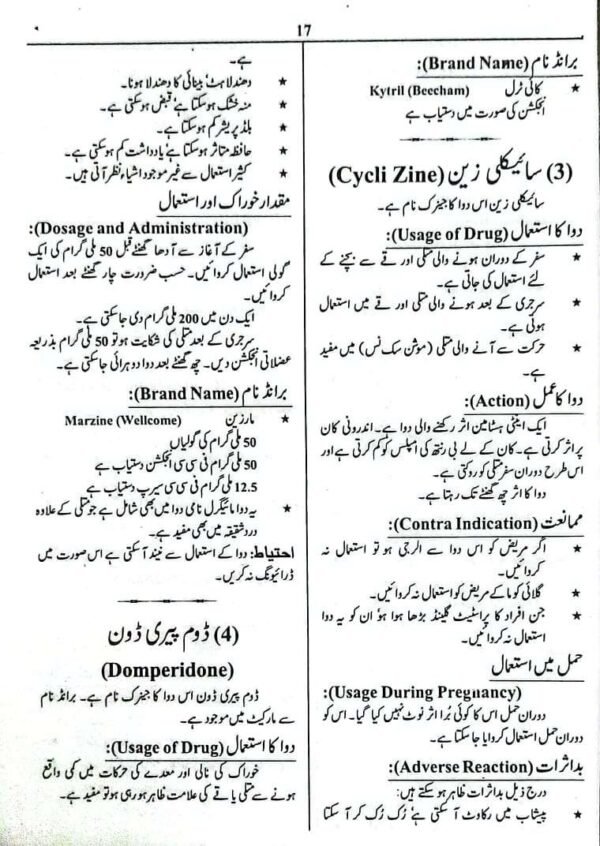 17
برانڈ نام (Brand Name):
★ کائی ٹرل Kytril (Beecham)
انجکشن کی صورت میں دستیاب ہے
(3) سائیکلی زین (Cycli Zine)
سائیکلی زین اس دوا کا جینرک نام ہے۔
دوا کا استعمال (Usage of Drug):
★ سفر کے دوران ہونے والی متلی اور قے سے بچنے کے
لئے استعمال کی جاتی ہے۔
★ سرجری کے بعد ہونے والی متلی اور قے میں استعمال
ہوتی ہے۔
★ حرکت سے آنے والی متلی (موشن سک نس) میں مفید
ہے۔
دوا کا عمل (Action):
ایک اینٹی ہسٹامین اثر رکھنے والی دوا ہے۔ اندرونی کان
پر اثر کرتی ہے۔ کان کے لے بی رنتھ کی امپلس کو کم کرتی ہے اور
اس طرح دوران سفر متلی کو روکتی ہے۔
دوا کا اثر چھ گھنٹے تک رہتا ہے۔
ممانعت (Contra Indication):
★ اگر مریض کو اس دوا سے الرجی ہو تو استعمال نہ
کروائیں۔
★ گلائی کوما کے مریض کو استعمال نہ کروائیں۔
★ جن افراد کا پراسٹیٹ گلینڈ بڑھا ہوا ہو ان کو یہ دوا
استعمال نہ کروائیں۔
حمل میں استعمال
(Usage During Pregnancy):
دوران حمل اس کا کوئی بُرا اثر نوٹ نہیں کیا گیا۔ اس کو
دوران حمل استعمال کروایا جا سکتا ہے۔
بداثرات (Adverse Reaction):
درج ذیل بداثرات ظاہر ہو سکتے ہیں:
★ پیشاب میں رکاوٹ آ سکتی ہے، رُک رُک کر آ سکتا
ہے۔
★ دھندلاہٹ، بینائی کا دھندلا ہونا۔
★ منہ خشک ہو سکتا ہے، قبض ہو سکتی ہے۔
★ بلڈ پریشر کم ہو سکتا ہے۔
★ حافظہ متاثر ہو سکتا ہے، یادداشت کم ہو سکتی ہے۔
★ کثیر استعمال سے غیر موجود اشیاء نظر آتی ہیں۔
مقدار خوراک اور استعمال
(Dosage and Administration):
سفر کے آغاز سے آدھا گھنٹے قبل 50 ملی گرام کی ایک
گولی استعمال کروائیں۔ حسب ضرورت چار گھنٹے بعد استعمال
کروائیں۔
ایک دن میں 200 ملی گرام دی جا سکتی ہے۔
سرجری کے بعد متلی کی شکایت ہو تو 50 ملی گرام بذریعہ
عضلاتی انجکشن دیں۔ چھ گھنٹے بعد دوا دوہرائی جا سکتی ہے۔
برانڈ نام (Brand Name):
★ مارزین Marzine (Wellcome)
50 ملی گرام کی گولیاں
50 ملی گرام فی سی سی انجکشن دستیاب ہے
12.5 ملی گرام فی سی سی سیرپ دستیاب ہے
★ یہ دوا مائیگرل نامی دوا میں بھی شامل ہے جو متلی کے علاوہ
درد شقیقہ میں بھی مفید ہے۔
احتیاط: دوا کے استعمال سے نیند آ سکتی ہے اس صورت میں
ڈرائیونگ نہ کریں۔
(4) ڈوم پیری ڈون
(Domperidone)
ڈوم پیری ڈون اس دوا کا جینرک نام ہے۔ برانڈ نام
سے مارکیٹ میں موجود ہے۔
دوا کا استعمال (Usage of Drug):
خوراک کی نالی اور معدے کی حرکات میں کمی واقع
ہونے سے متلی یا قے کی علامت ظاہر ہو رہی ہو تو مفید ہے۔